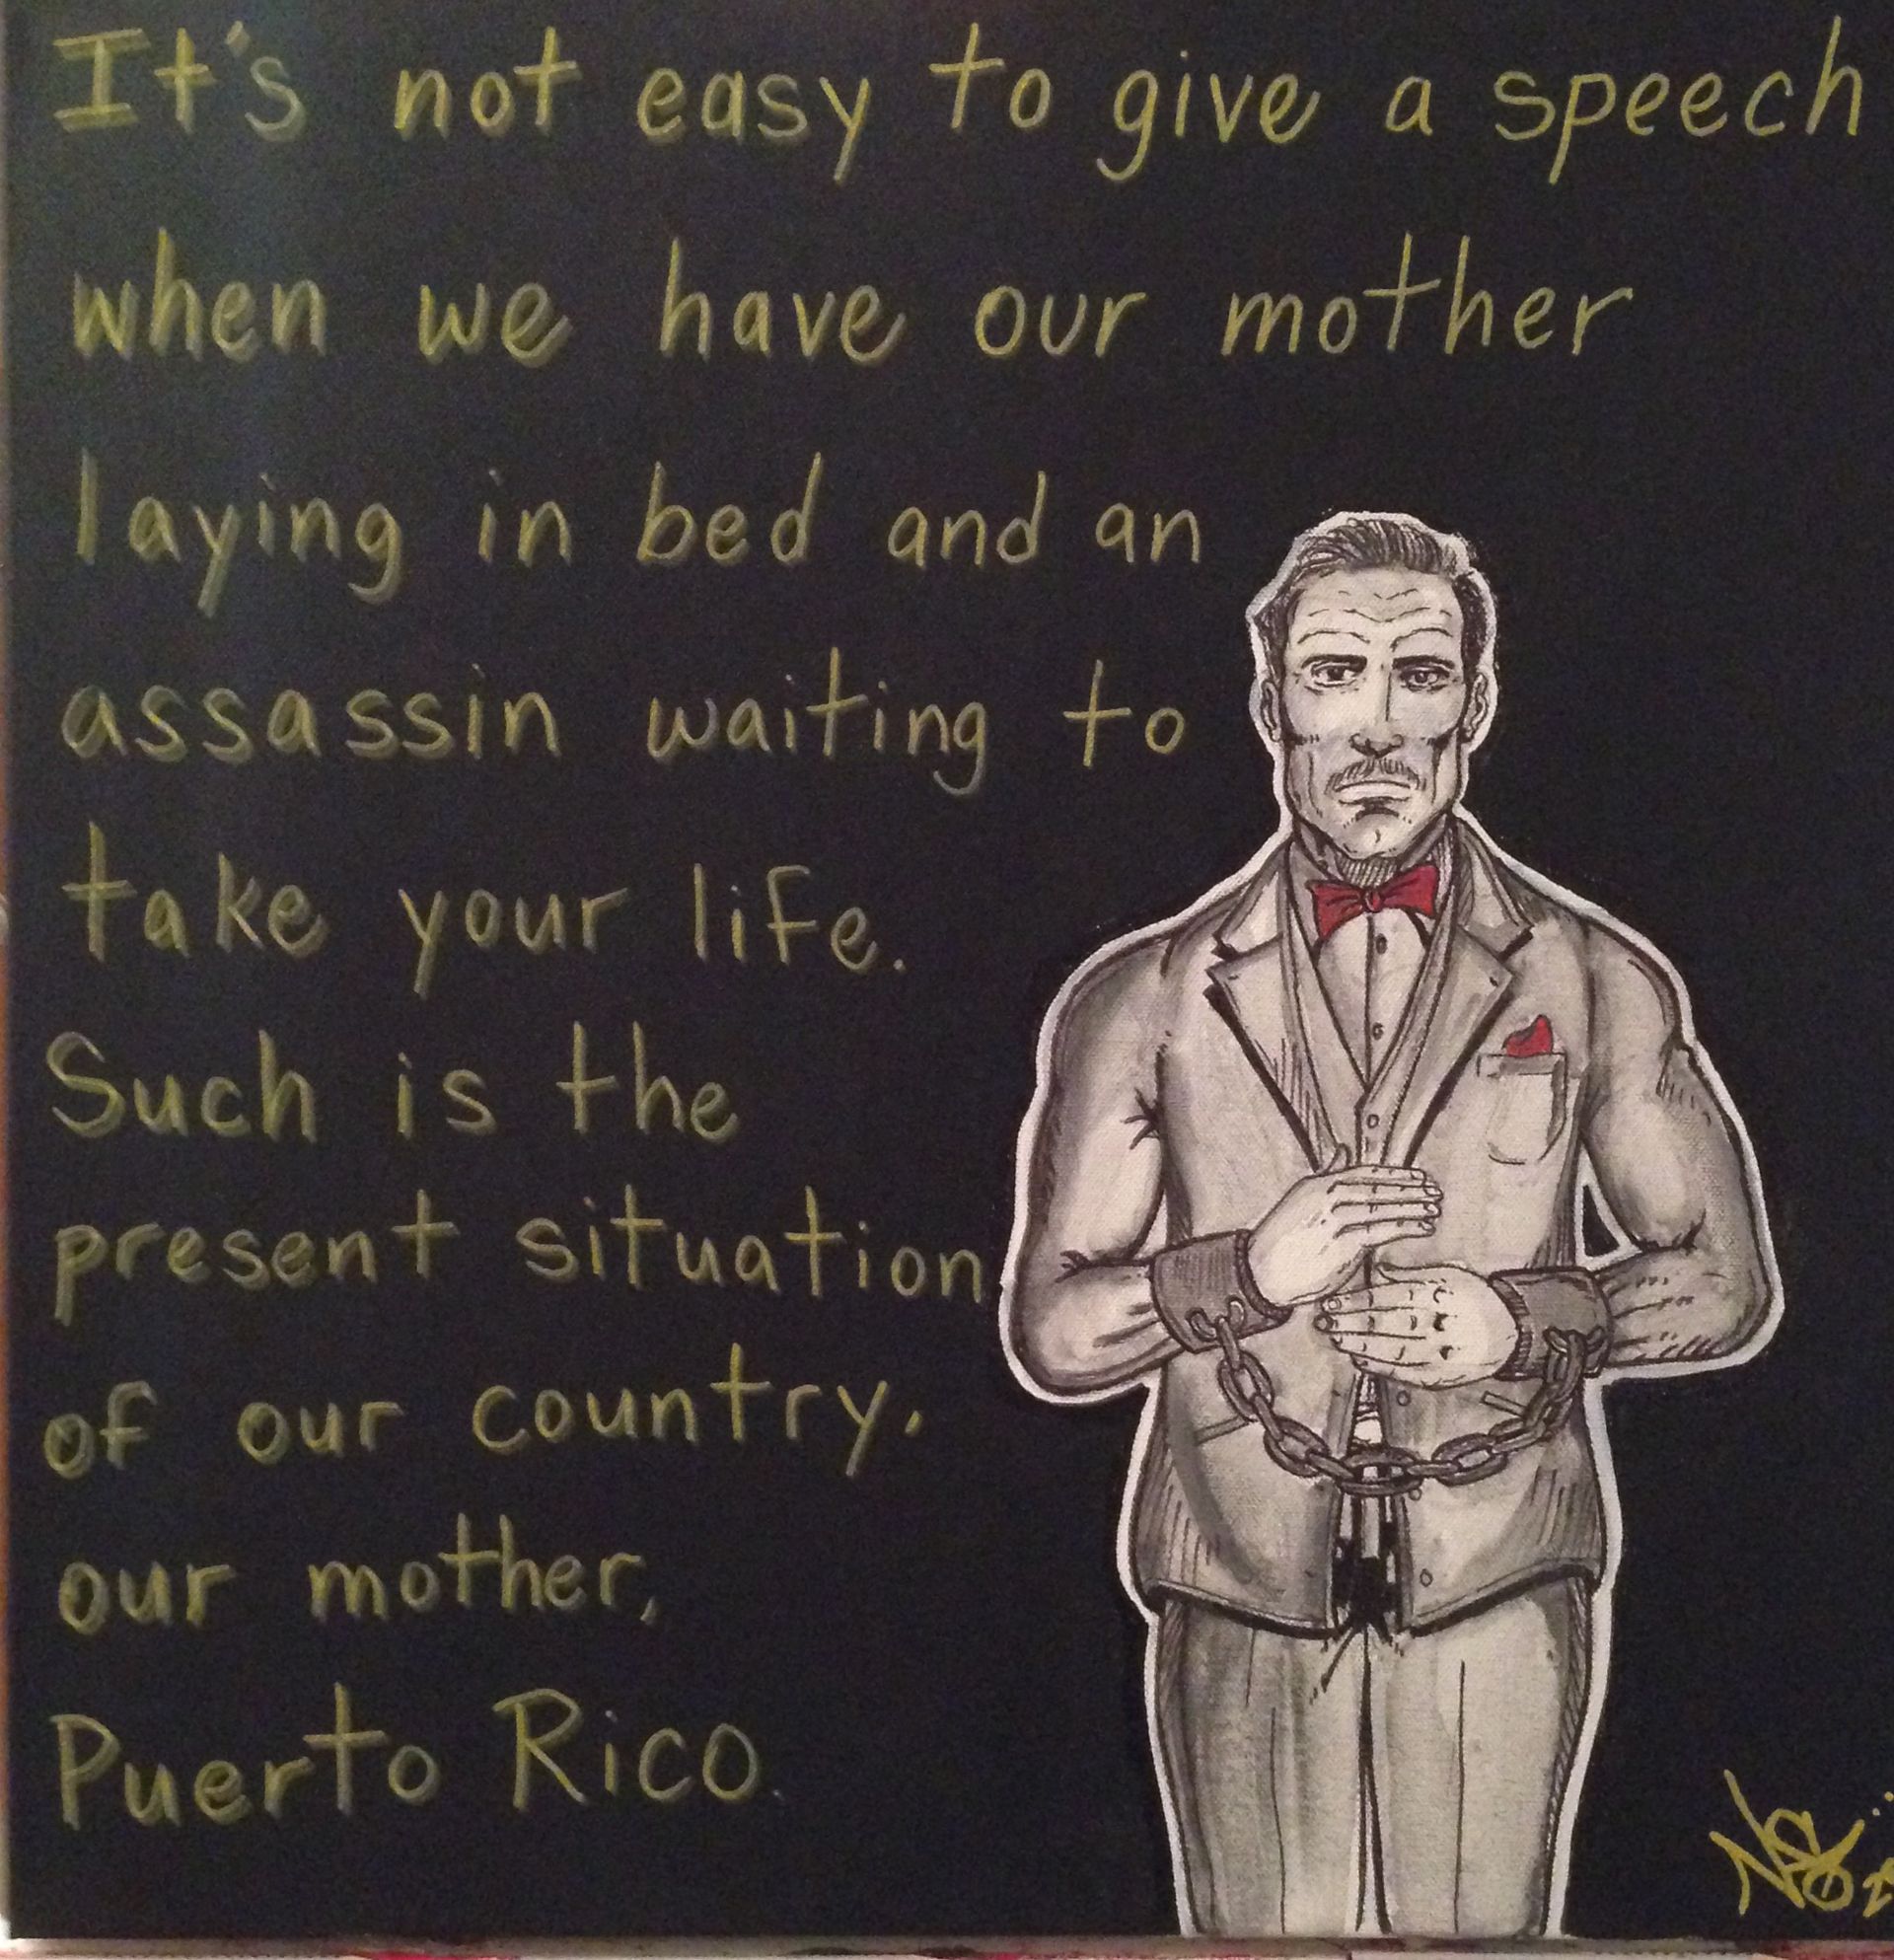 It's not easy to give a speech
when we have our mother
laying in bed and an
assassin waiting to
take your life.
Such is the
present situation
of our country,
our mother,
Puerto Rico.